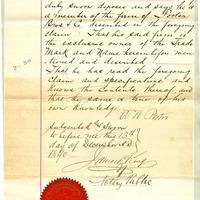 duly sworn deposes and says he is
a member of the firm of Porter
Bros & Co described in the foregoing
claim: That his said firm is
the exclusive owner of the Trade
Mark and Name herein before men
tioned and described
That he has read the foregoing
Claim and Specification and
knows the Contents thereof, and
that the same is true of his
own knowledge
W. W. Porter
Subscribed & Sworn
to before me this 13th
day of December A.D.
1890
Notary Public